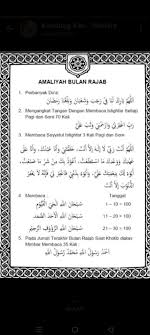 AMALIYAH BULAN RAJAB
1. Perbanyak Do'a:
اللَّهُمَّ بَارِكْ لَنَا فِي رَجَبَ وَشَعْبَانَ وَبَلِّغْنَا رَمَضَانَ
2. Mengangkat Tangan Dengan Membaca Istighfar Setiap
Pagi dan Sore 70 Kali
رَبِّ اغْفِرْ لِي وَارْحَمْنِي وَتُبْ عَلَيَّ
3. Membaca Sayyidul Istighfar 3 Kali Pagi dan Sore
اللَّهُمَّ أَنْتَ رَبِّي لَا إِلَهَ إِلَّا أَنْتَ، خَلَقْتَنِي وَأَنَا عَبْدُكَ، وَأَنَا عَلَى
عَهْدِكَ وَوَعْدِكَ مَا اسْتَطَعْتُ، أَعُوذُ بِكَ مِنْ شَرِّ مَا صَنَعْتُ،
أَبُوءُ لَكَ بِنِعْمَتِكَ عَلَيَّ، وَأَبُوءُ بِذَنْبِي فَاغْفِرْ لِي فَإِنَّهُ لَا يَغْفِرُ
الذُّنُوبَ إِلَّا أَنْتَ
4. Membaca Tanggal
سُبْحَانَ اللهِ الْحَيِّ الْقَيُّومِ 1 – 10 = 100
سُبْحَانَ اللهِ الْأَحَدِ الصَّمَدِ 11 – 20 = 100
سُبْحَانَ اللهِ الرَّؤُوفِ الرَّحِيمِ 21 – 30 = 100
5. Pada Jumat Terakhir Bulan Rajab Saat Khotib diatas
Mimbar Membaca 35 Kali
أَحْمَدُ رَسُولُ اللهِ مُحَمَّدٌ رَسُولُ اللهِ